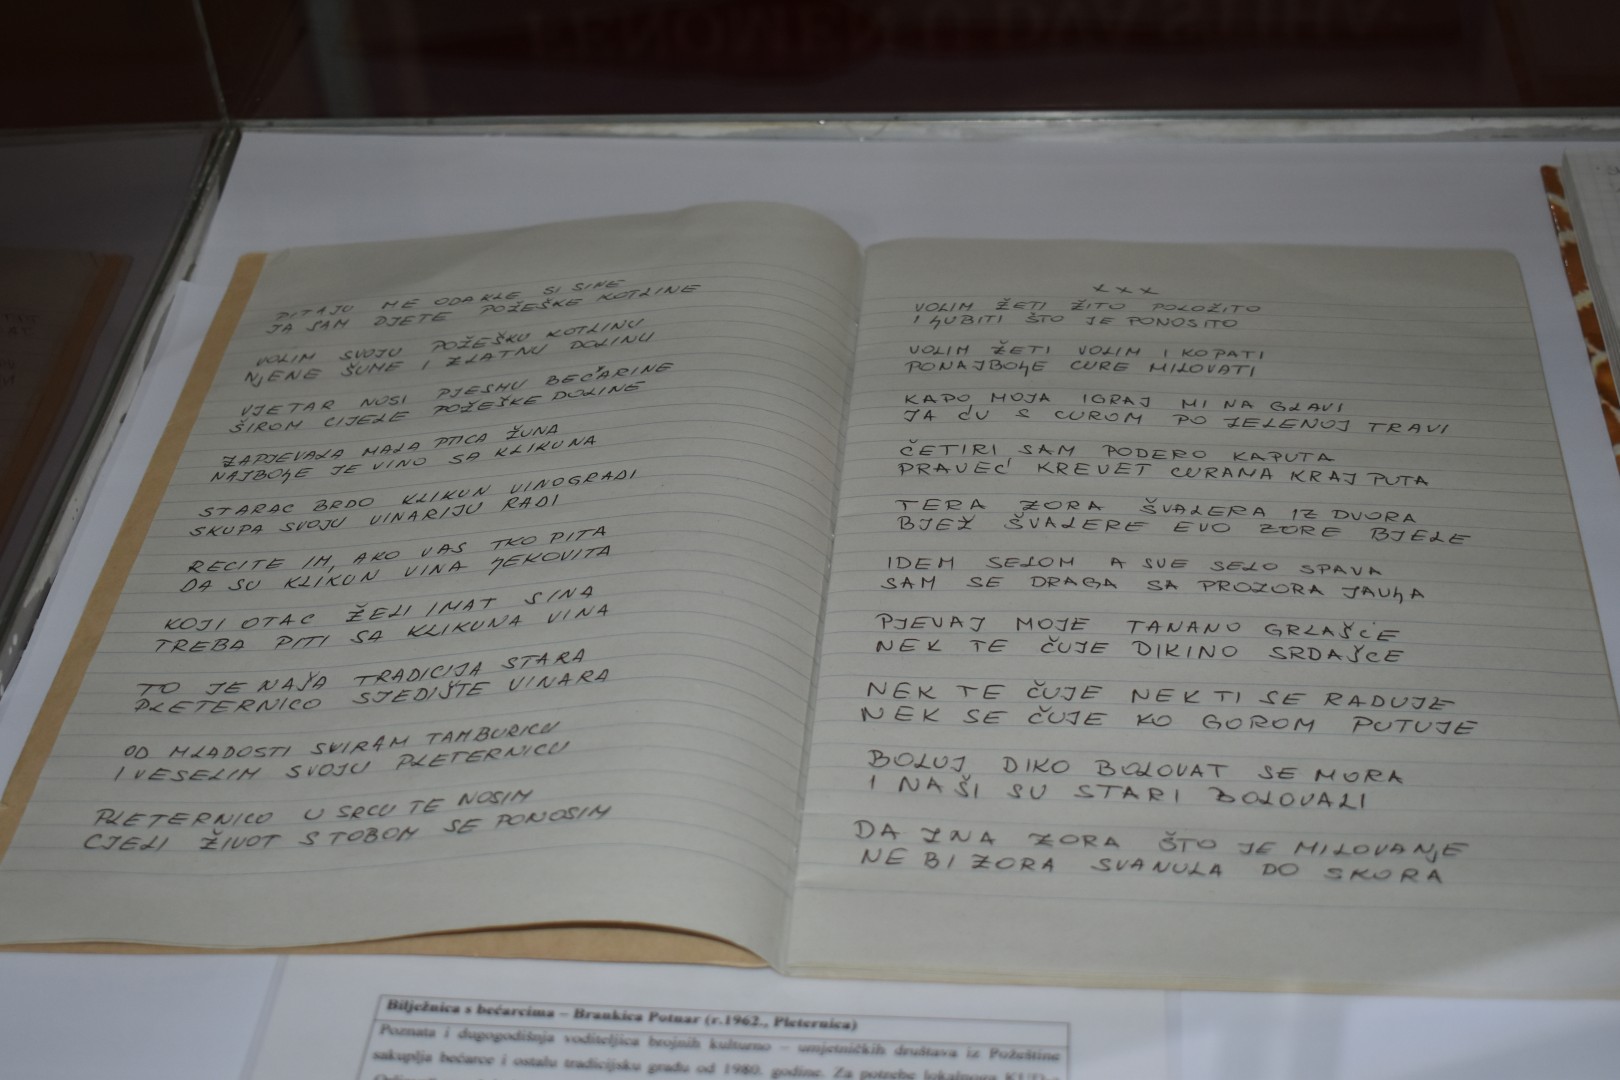 PITAJU ME ODAKLE SI SINE
JA SAM DJETE POŽEŠKE KOTLINE
VOLIM SVOJU POŽEŠKU KOTLINU
NJENE ŠUME I ZLATNU DOLINU
VJETAR NOSI PJESMU BEČARINE
ŠIROM CIJELE POŽEŠKE DOLINE
ZAPJEVALA MALA PTICA ŽUNA
NAJBOLJE JE VINO SA KLIKUNA
STARAC BRDO KLIKUN VINOGRADI
SKUPA SVOJU VINARIJU RADI
RECITE IM, AKO VAS TKO PITA
DA SU KLIKUN VINA LJEKOVITA
KOJI OTAC ŽELI IMAT SINA
TREBA PITI SA KLIKUNA VINA
TO JE NAŠA TRADICIJA STARA
PLETERNICO SJEDIŠTE VINARA
OD MLADOSTI SVIRAM TAMBURICU
I VESELIM SVOJU PLETERNICU
PLETERNICO U SRCU TE NOSIM
CJELI ŽIVOT S TOBOM SE PONOSIM
x x x
VOLIM ŽETI ŽITO POLOŽITO
I LJUBITI ŠTO JE PONOSITO
VOLIM ŽETI VOLIM I KOPATI
PONAJBOLJE CURE MILOVATI
KAPO MOJA IGRAJ MI NA GLAVI
JA ĆU S CUROM PO ZELENOJ TRAVI
ČETIRI SAM PODERO KAPUTA
PRAVEĆ KREVET CURAMA KRAJ PUTA
TERA ZORA ŠVALERA IZ DVORA
BJEŽ ŠVALERE EVO ZORE BJELE
IDEM SELOM A SVE SELO SPAVA
SAM SE DRAGA SA PROZORA JAVLJA
PJEVAJ MOJE TANANO GRLAŠCE
NEK TE ČUJE DIKINO SRDAŠCE
NEK TE ČUJE NEK TI SE RADUJE
NEK SE ČUJE KO GOROM PUTUJE
BOLUJ DIKO BOLOVAT SE MORA
I NAŠI SU STARI BOLOVALI
DA ZNA ZORA ŠTO JE MILOVANJE
NE BI ZORA SVANULA DO SKORA
Bilježnica s bećarcima – Brankica Potnar (r.1962., Pleternica)
Poznata i dugogodišnja voditeljica brojnih kulturno – umjetničkih društava iz Požeštine
sakuplja bećarce i ostalu tradicijsku građu od 1980. godine. Za potrebe lokalnoga KUD-a